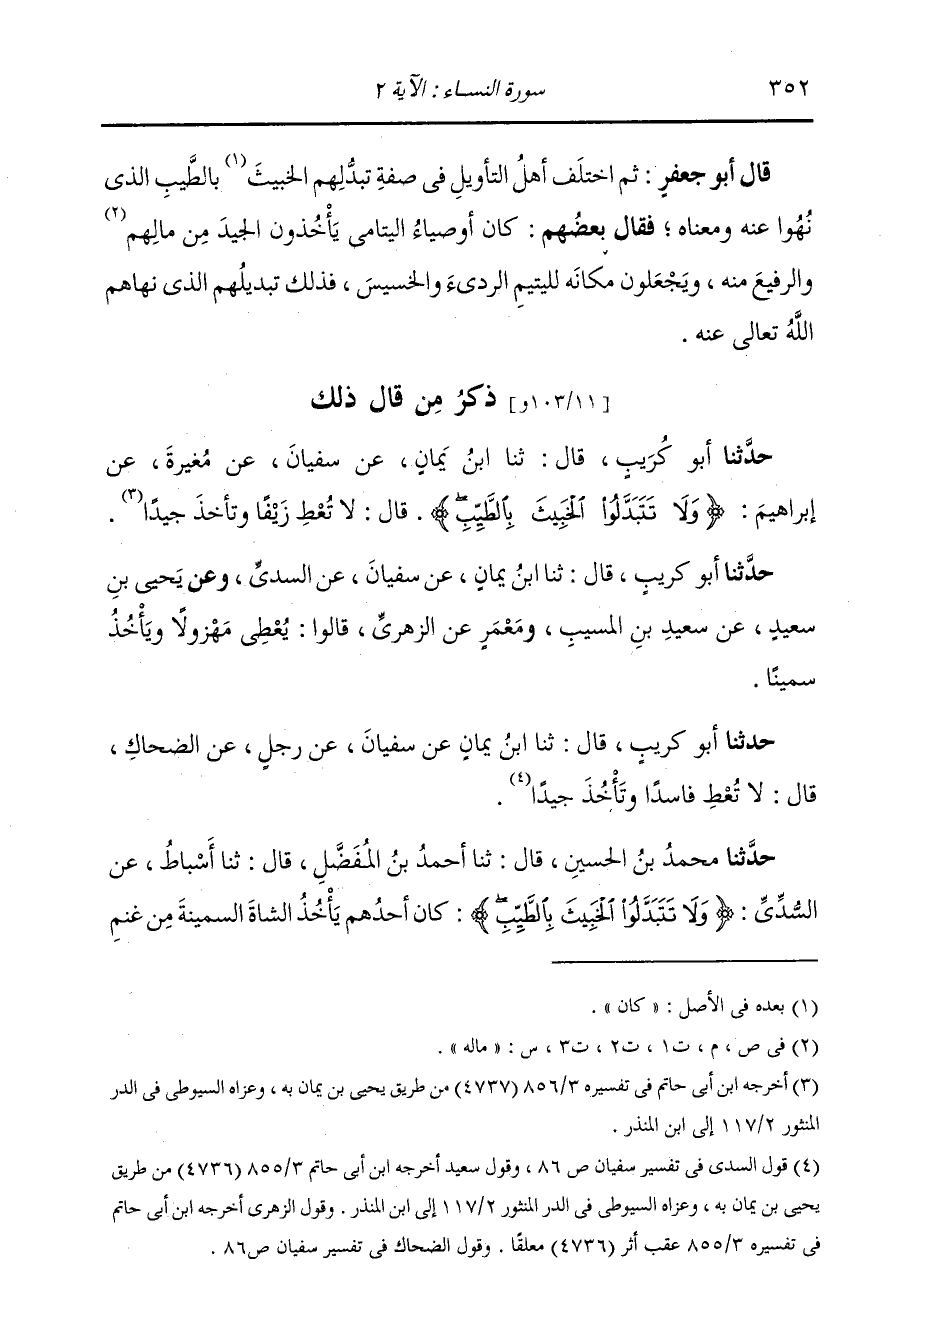 ٣٥٢ سورة النساء : الآية ٢
قال أبو جعفرٍ : ثم اختلَف أهلُ التأويلِ فى صفةِ تبدُّلِهم الخبيثَ(١) بالطَّيبِ الذى
نُهُوا عنه ومعناه ؛ فقال بعضُهم : كان أوصياءُ اليتامى يَأْخُذون الجيدَ مِن مالِهم(٢)
والرفيعَ منه ، ويَجْعَلون مكانَه لليتيمِ الردىءَ والخسيسَ ، فذلك تبديلُهم الذى نهاهم
اللَّهُ تعالى عنه .
[١٠٣/١١و] ذكرُ مِن قال ذلك
حدَّثنا أبو كُرَيبٍ ، قال : ثنا ابنُ يَمانٍ ، عن سفيانَ ، عن مُغيرةَ ، عن
إبراهيمَ : ﴿وَلَا تَتَبَدَّلُوا۟ ٱلْخَبِيثَ بِٱلطَّيِّبِۖ﴾ . قال : لا تُعْطِ زَيْفًا وتأخذَ جيدًا(٣) .
حدَّثنا أبو كريبٍ ، قال : ثنا ابنُ يمانٍ ، عن سفيانَ ، عن السدىِّ ، وعن يَحيى بنِ
سعيدٍ ، عن سعيدِ بنِ المسيبِ ، ومَعْمَرٍ عن الزهرىِّ ، قالوا : يُعْطِى مَهْزولًا ويَأْخُذُ
سمينًا .
حدثنا أبو كريبٍ ، قال : ثنا ابنُ يمانٍ عن سفيانَ ، عن رجلٍ ، عن الضحاكِ ،
قال : لا تُعْطِ فاسدًا وتَأْخُذَ جيدًا(٤) .
حدَّثنا محمدُ بنُ الحسينِ ، قال : ثنا أحمدُ بنُ المُفَضَّلِ ، قال : ثنا أَسْباطُ ، عن
السُّدِّىِّ : ﴿وَلَا تَتَبَدَّلُوا۟ ٱلْخَبِيثَ بِٱلطَّيِّبِۖ﴾ : كان أحدُهم يَأْخُذُ الشاةَ السمينةَ مِن غنمِ
(١) بعده فى الأصل : « كان » .
(٢) فى ص ، م ، ت١ ، ت٢ ، ت٣ ، س : « ماله » .
(٣) أخرجه ابن أبى حاتم فى تفسيره ٨٥٦/٣ (٤٧٣٧) من طريق يحيى بن يمان به ، وعزاه السيوطى فى الدر
المنثور ١١٧/٢ إلى ابن المنذر .
(٤) قول السدى فى تفسير سفيان ص ٨٦ ، وقول سعيد أخرجه ابن أبى حاتم ٨٥٥/٣ (٤٧٣٦) من طريق
يحيى بن يمان به ، وعزاه السيوطى فى الدر المنثور ١١٧/٢ إلى ابن المنذر . وقول الزهرى أخرجه ابن أبى حاتم
فى تفسيره ٨٥٥/٣ عقب أثر (٤٧٣٦) معلقًا . وقول الضحاك فى تفسير سفيان ص٨٦ .